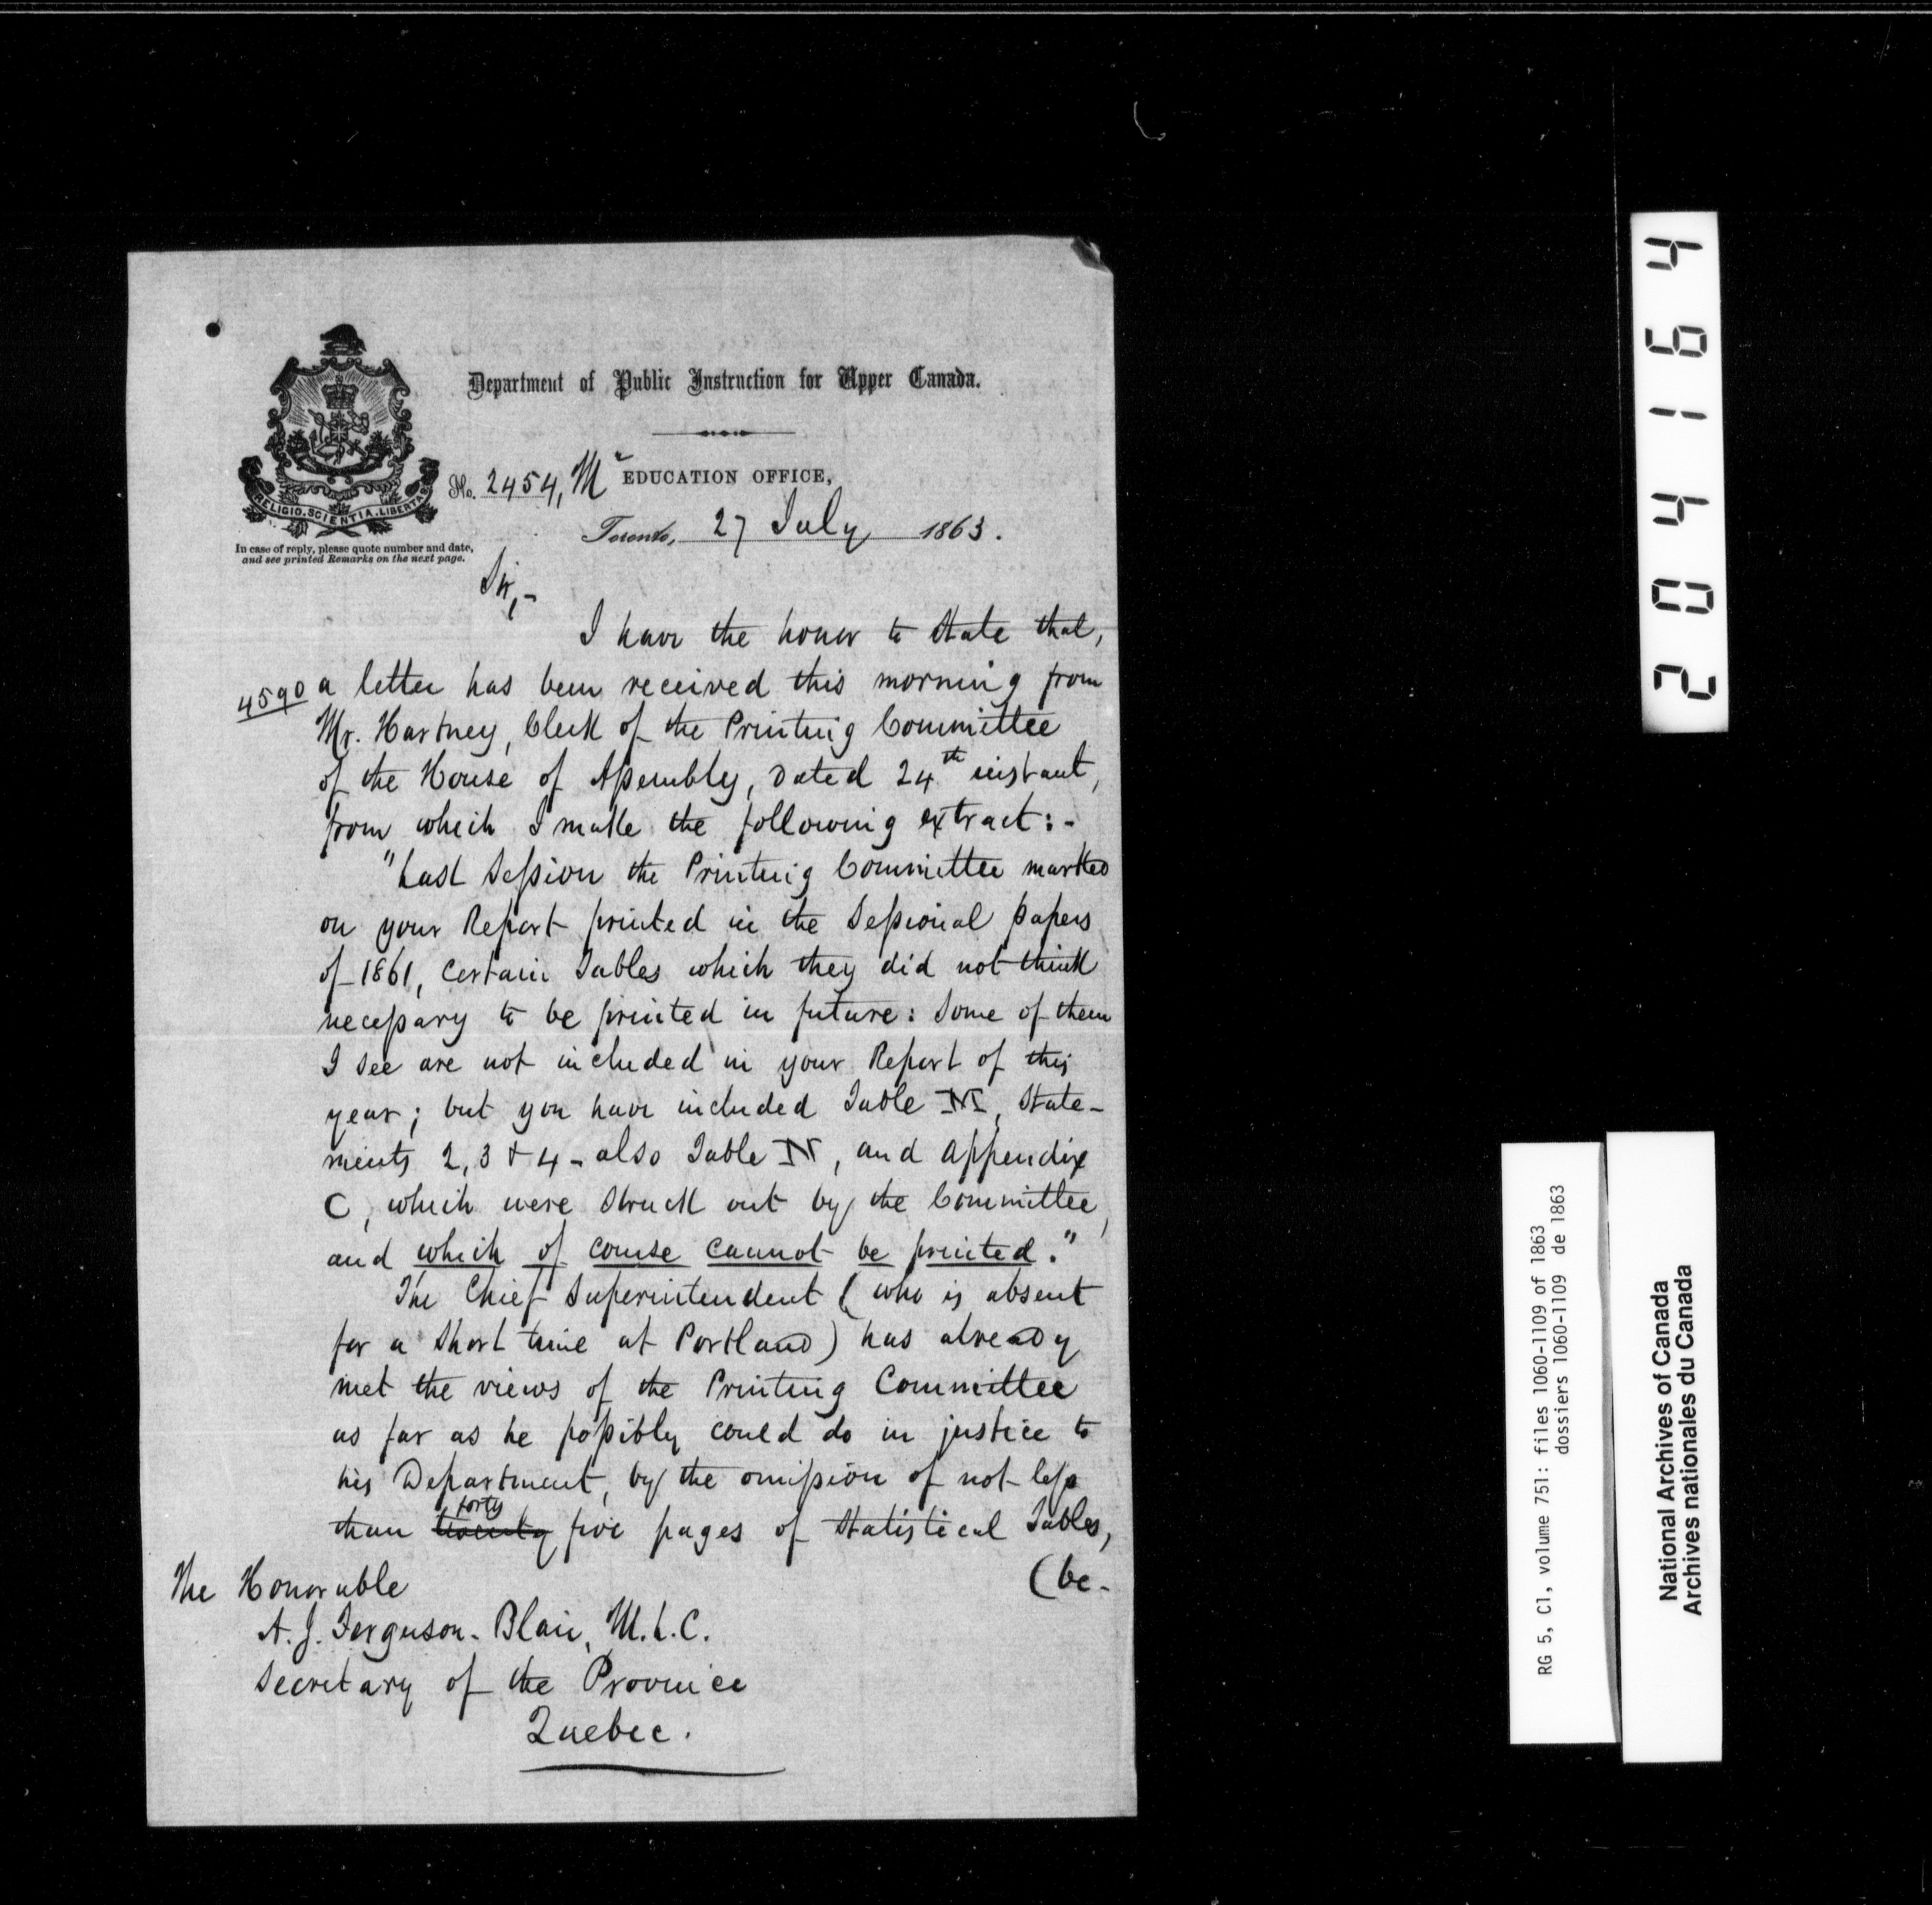 Department of Public Instruction for Upper Canada.
No. 2454, M
EDUCATION OFFICE,
Toronto, 27 July 1863.
RELIGIO. SCIENTIA. LIBERTAS
In case of reply, please quote number and date,
and see printed Remarks on the next page.
Sir,-
I have the honor to state that,
4590 a letter has been received this morning from
Mr. Hartney, Clerk of the Printing Committee
of the House of Assembly, dated 24th instant,
from which I make the following extract:-
"Last Session the Printing Committee marked
on your Report printed in the Sessional papers
of 1861, certain Tables which they did not think
necessary to be printed in future: Some of them
I see are not included in your Report of this
year; but you have included Table State-
ments 2, 3 & 4 - also Table N, and Appendix
C, which were struck out by the Committee,
and which of course cannot be printed."
The Chief Superintendent (who is absent
for a short time at Portland) has already
met the views of the Printing Committee
as far as he possibly could do in justice to
his Department, by the omission of not less
than twenty forty five pages of Statistical Tables,
(be-
The Honorable
A. J. Ferguson-Blair, M.L.C.
Secretary of the Province
Quebec.
204164
RG 5, C1, volume 751: files 1060-1109 of 1863
dossiers 1060-1109 de 1863
National Archives of Canada
Archives nationales du Canada